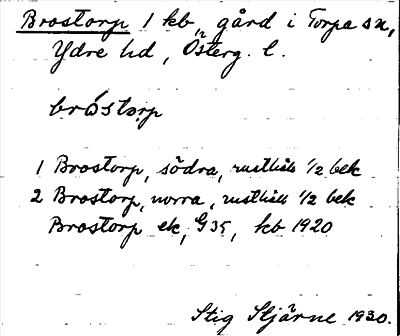 Brostorp 1 kb, gård i Torpa sn,
Ydre hd, Österg. l.
bróstorp
1 Brostorp, södra, rusthåll 1/2 bek
2 Brostorp, norra, rusthåll 1/2 bek
Brostorp ek, G35, kb 1920
Stig Stjärne 1930.